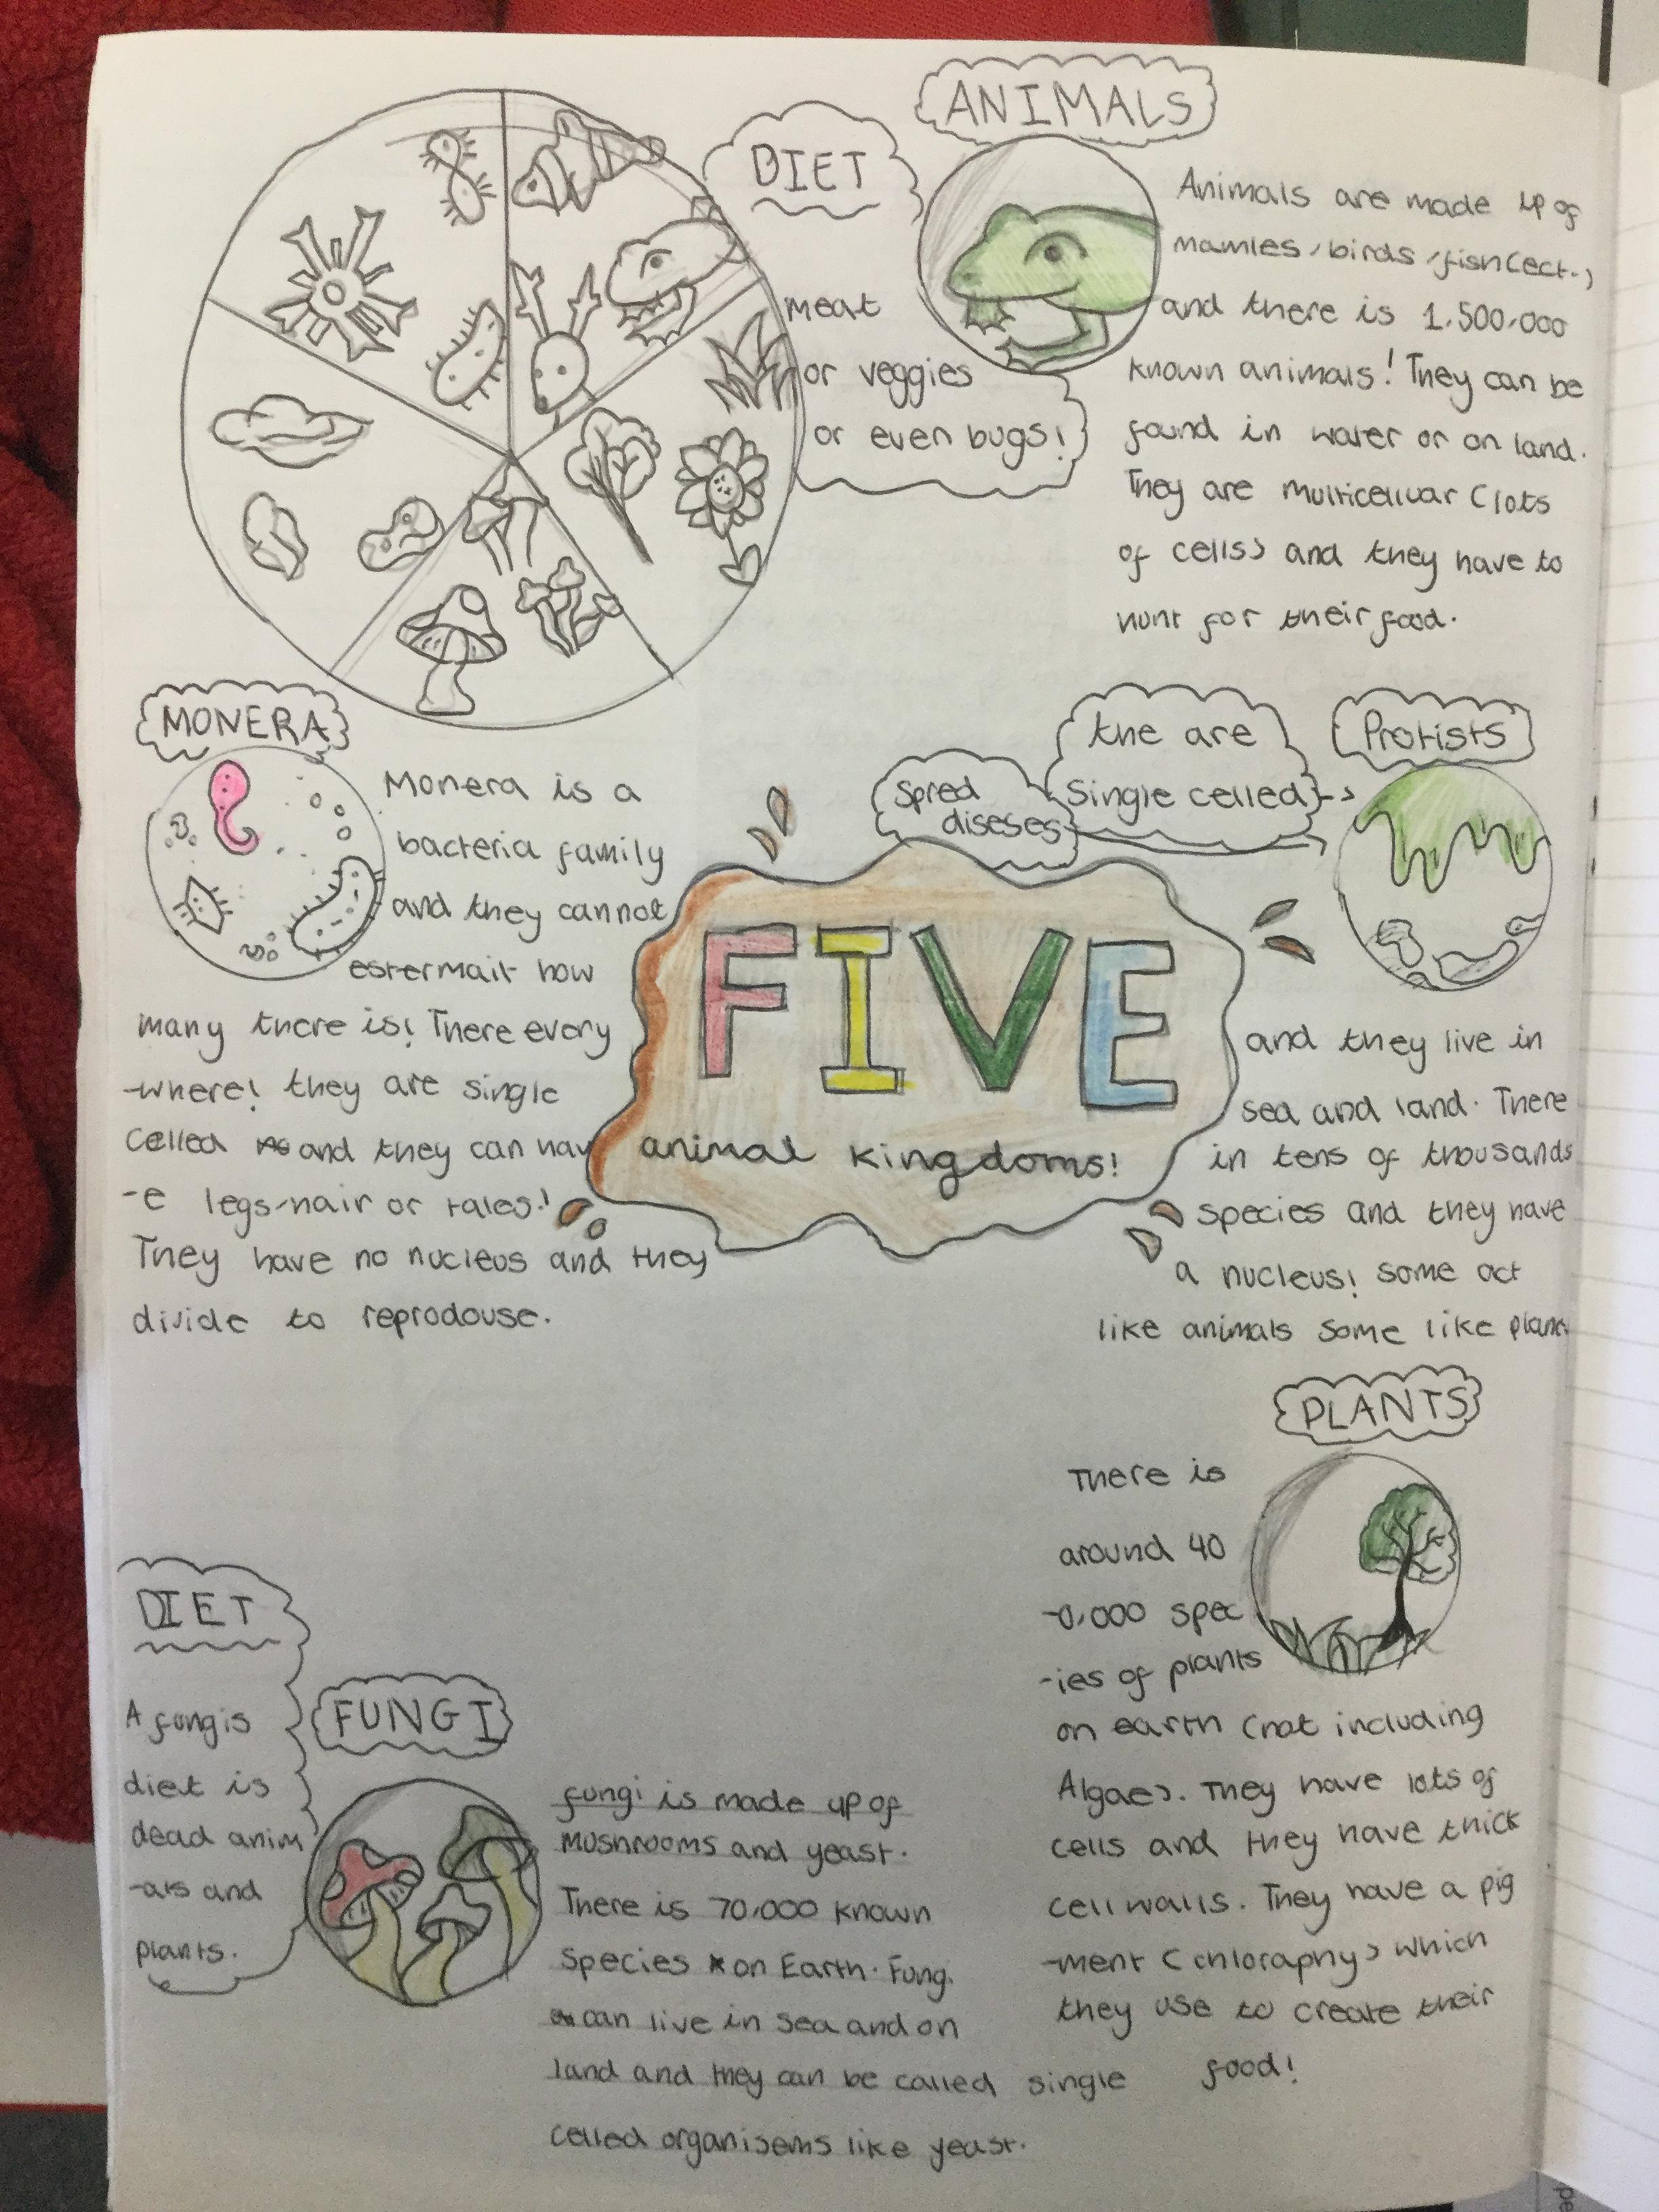 ANIMALS
Animals are made up of
mamles, birds, fish (ect.)
and there is 1,500,000
known animals! They can be
found in water or on land.
They are multicelluar (lots
of cells) and they have to
hunt for their food.
DIET
meat
or veggies
or even bugs!
MONERA
Monera is a
bacteria family
and they cannot
estermait how
many there is! There every
-where! they are single
celled and they can hav
-e legs, hair or tales!
They have no nucleus and they
divide to reprodouse.
FIVE
animal kingdoms!
Protists
the are
single celled
Spred
diseses
and they live in
sea and land. There
in tens of thousands
species and they have
a nucleus! some act
like animals some like plants
PLANTS
There is
around 40
-0,000 spec
-ies of plants
on earth (not including
Algae). They have lots of
cells and they have thick
cell walls. They have a pig
-ment (chloraphy) which
they use to create their
food!
DIET
A fungis
diet is
dead anim
-als and
plants.
FUNGI
fungi is made up of
mushrooms and yeast.
There is 70,000 known
species on Earth. Fungi
can live in sea and on
land and they can be called single
celled organisems like yeast.